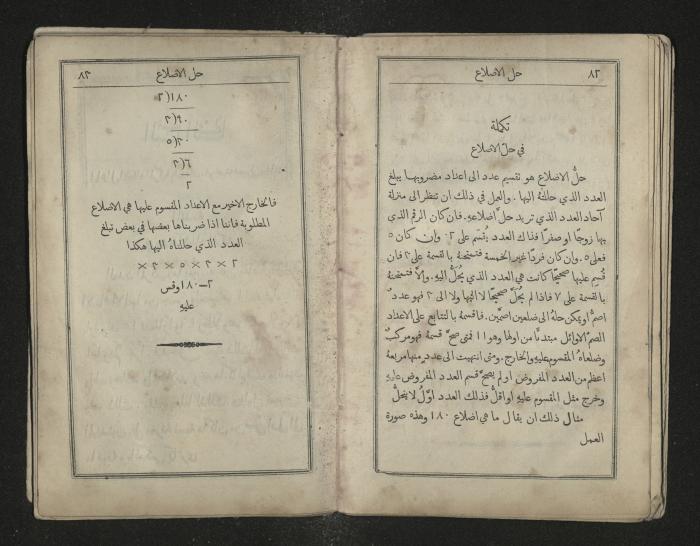 ٨٢
حل الاضلاع
تكملة
في حلّ الاضلاع
حلُّ الاضلاع هو تقسيم عدد الى اعداد مضروبها يبلغ
العدد الذي حللتهُ اليها . والعمل في ذلك ان تنظر الى منزلة
آحاد العدد الذي تريد حلَّ اضلاعهِ . فان كان الرقم الذي
بها زوجًا او صفرًا فذلك العدد يُقسَم على ٢ . وان كان ٥
فعلى ٥ . وان كان فردًا غير الخمسة فتمتحنهُ بالقسمة على ٣ فان
قُسِم عليها صحيحًا كانت هي العدد الذي يُحَلُّ اليهِ . والَّا فتمتحنهُ
بالقسمة على ٧ فاذا لم يُحَلَّ صحيحًا لا اليها ولا الى ٣ فهو عددٌ
اصمُّ او يمكن حلهُ الى ضلعين اصمَّين . فاقسمهُ بالتتابع على الاعداد
الصمّ الاوائل مبتدئًا من اولها وهو ١١ فمتى صحَّ قسمهُ فهو مركبٌ
وضلعاهُ المقسوم عليهِ والخارج . ومتى انتهيت الى عددٍ منها مربعهُ
اعظم من العدد المفروض او لم يصحَّ قسم العدد المفروض عليهِ
وخرج مثل المقسوم عليهِ او اقلُّ فذلك العدد اوَّلُ لا ينحلُّ
مثال ذلك ان يقال ما هي اضلاع ١٨٠ وهذه صورة
العمل
حل الاضلاع
٨٣
٢)١٨٠
٩٠)٣
٣٠)٥
٦)٣
٢
فالخارج الاخير مع الاعداد المقسوم عليها هي الاضلاع
المطلوبة فاننا اذا ضربناها بعضها في بعض تبلغ
العدد الذي حللناهُ اليها هكذا
٢ × ٣ × ٥ × ٣ ×
٢ = ١٨٠ وقس
عليهِ